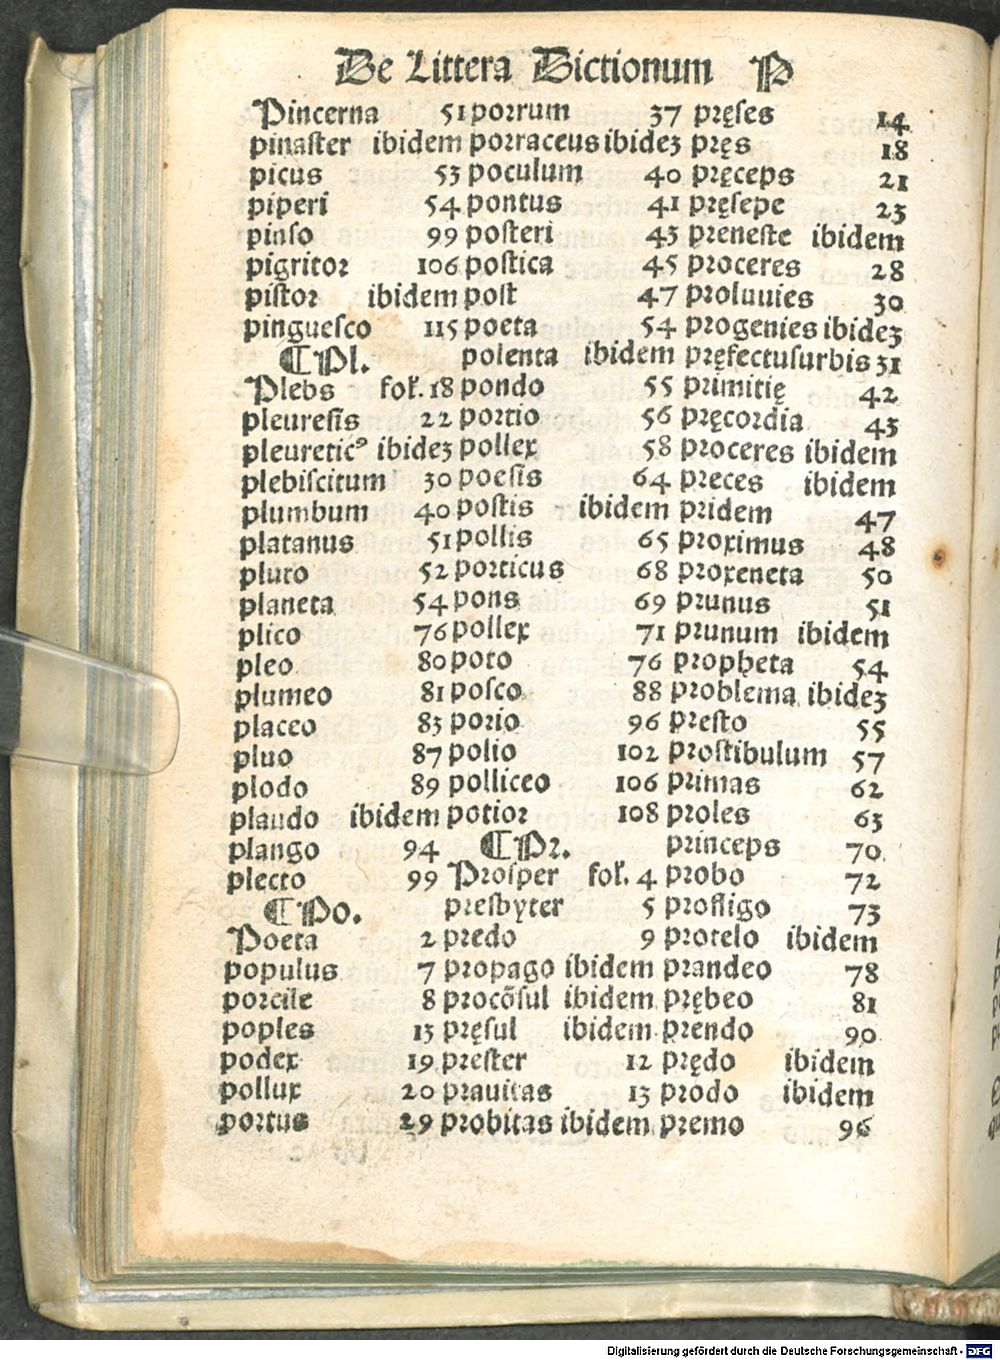 De Littera Dictionum P
Pincerna 51
pinaſter ibidem
picus 53
piperi 54
pinſo 99
pigritor 106
piſtor ibidem
pingueſco 115
¶Pl.
Plebs fol. 18
pleureſis 22
pleureticꝰ ibideʒ
plebiſcitum 30
plumbum 40
platanus 51
pluto 52
planeta 54
plico 76
pleo 80
plumeo 81
placeo 83
pluo 87
plodo 89
plaudo ibidem
plango 94
plecto 99
¶Po.
Poeta 2
populus 7
porcile 8
poples 13
podex 19
pollux 20
portus 29
porrum 37
porraceus ibideʒ
poculum 40
pontus 41
poſteri 43
poſtica 45
poſt 47
poeta 54
polenta ibidem
pondo 55
portio 56
pollex 58
poeſis 64
poſtis ibidem
pollis 65
porticus 68
pons 69
pollex 71
poto 76
poſco 88
porio 96
polio 102
polliceo 106
potior 108
¶Pr.
Proſper fol. 4
presbyter 5
predo 9
propago ibidem
procõſul ibidem
pręſul ibidem
preſter 12
prauitas 13
probitas ibidem
pręſes 14
pręs 18
pręceps 21
pręſepe 23
preneſte ibidem
proceres 28
proluuies 30
progenies ibideʒ
pręfectuſurbis 31
primitię 42
pręcordia 43
proceres ibidem
preces ibidem
pridem 47
proximus 48
proxeneta 50
prunus 51
prunum ibidem
propheta 54
problema ibideʒ
preſto 55
proſtibulum 57
primas 62
proles 63
princeps 70
probo 72
profligo 73
protelo ibidem
prandeo 78
prębeo 81
prendo 90
prędo ibidem
prodo ibidem
premo 96
Digitalisierung gefördert durch die Deutsche Forschungsgemeinschaft - DFG